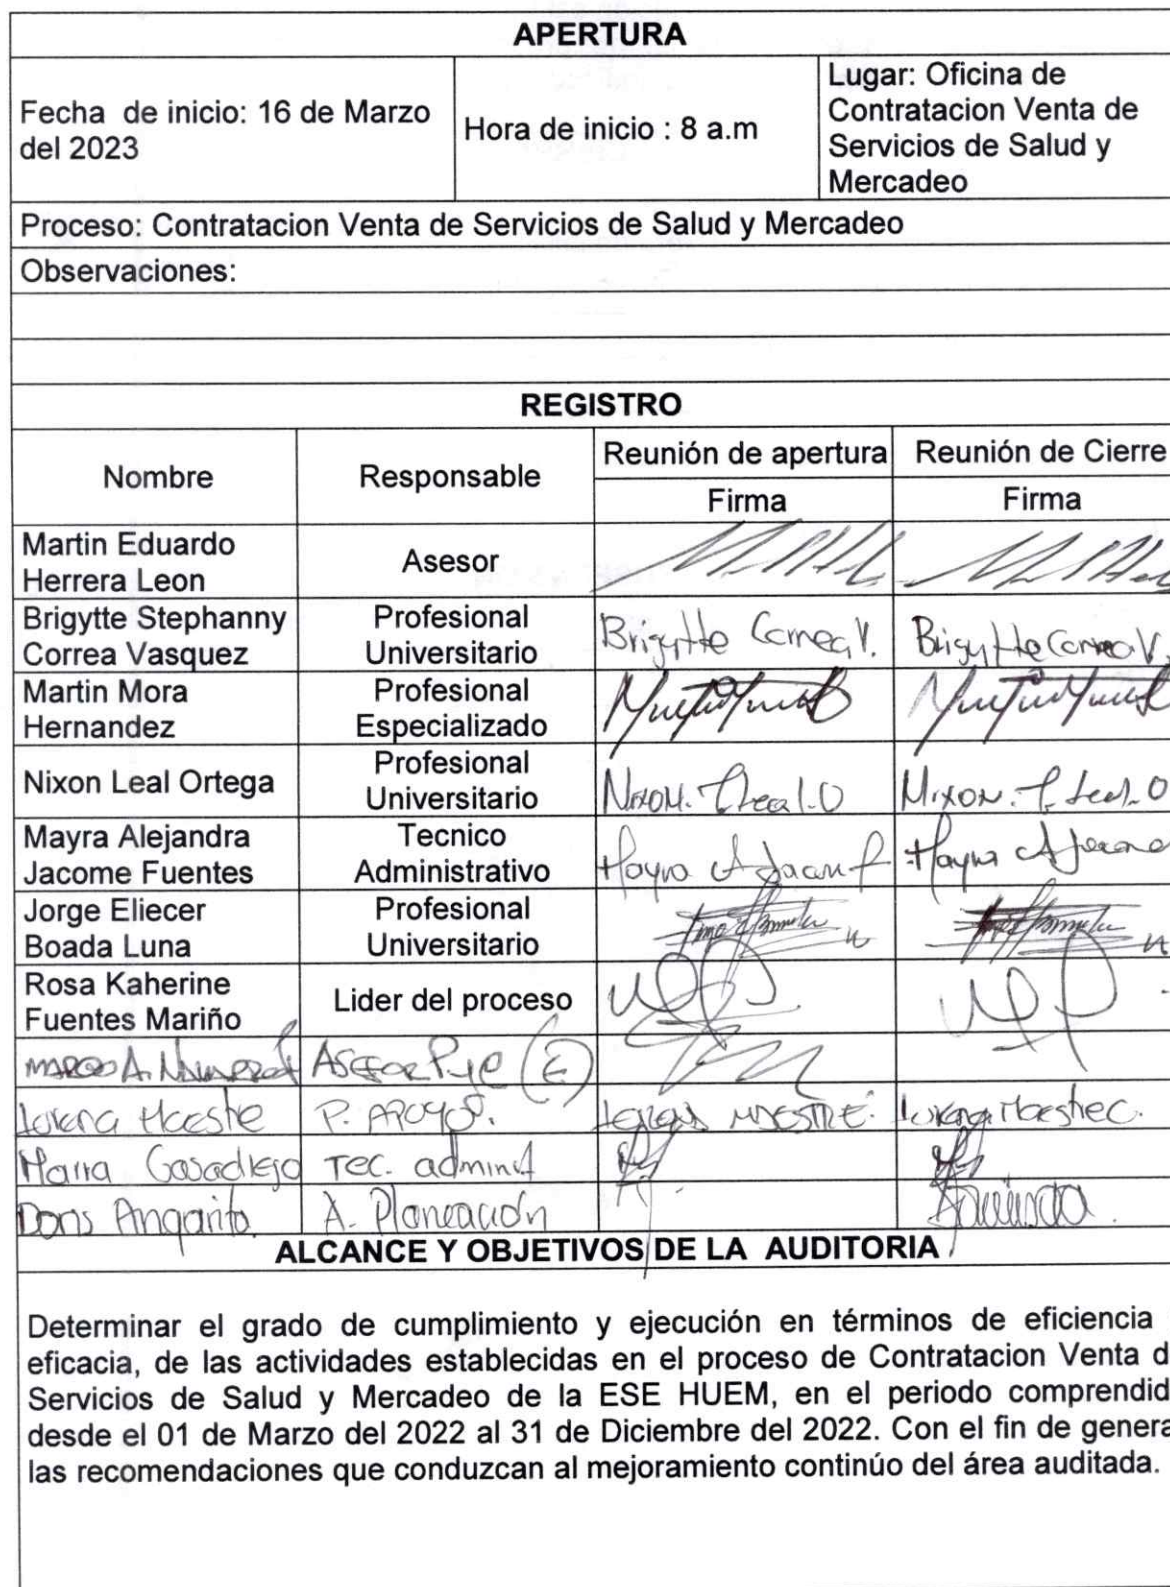 APERTURA
Fecha de inicio: 16 de Marzo
del 2023
Hora de inicio : 8 a.m
Lugar: Oficina de
Contratacion Venta de
Servicios de Salud y
Mercadeo
Proceso: Contratacion Venta de Servicios de Salud y Mercadeo
Observaciones:
REGISTRO
Nombre
Responsable
Reunión de apertura
Reunión de Cierre
Firma
Firma
Martin Eduardo
Herrera Leon
Asesor
Brigytte Stephanny
Correa Vasquez
Profesional
Universitario
Brigytte Correa V.
Brigytte Correa V.
Martin Mora
Hernandez
Profesional
Especializado
Nixon Leal Ortega
Profesional
Universitario
Nixon. Leal.O
Nixon. Leal.O
Mayra Alejandra
Jacome Fuentes
Tecnico
Administrativo
Mayra A Jacome F
Mayra A Jacome
Jorge Eliecer
Boada Luna
Profesional
Universitario
Rosa Kaherine
Fuentes Mariño
Lider del proceso
MARCO A.
ASESOR (E)
Lorena Maestre
P. APOYO.
LORENA MAESTRE.
Lorena Maestre C.
Maria Casadiego
Tec. admint
Doris Angarita.
A. Planeación
ALCANCE Y OBJETIVOS DE LA AUDITORIA
Determinar el grado de cumplimiento y ejecución en términos de eficiencia
eficacia, de las actividades establecidas en el proceso de Contratacion Venta d
Servicios de Salud y Mercadeo de la ESE HUEM, en el periodo comprendid
desde el 01 de Marzo del 2022 al 31 de Diciembre del 2022. Con el fin de genera
las recomendaciones que conduzcan al mejoramiento continúo del área auditada.